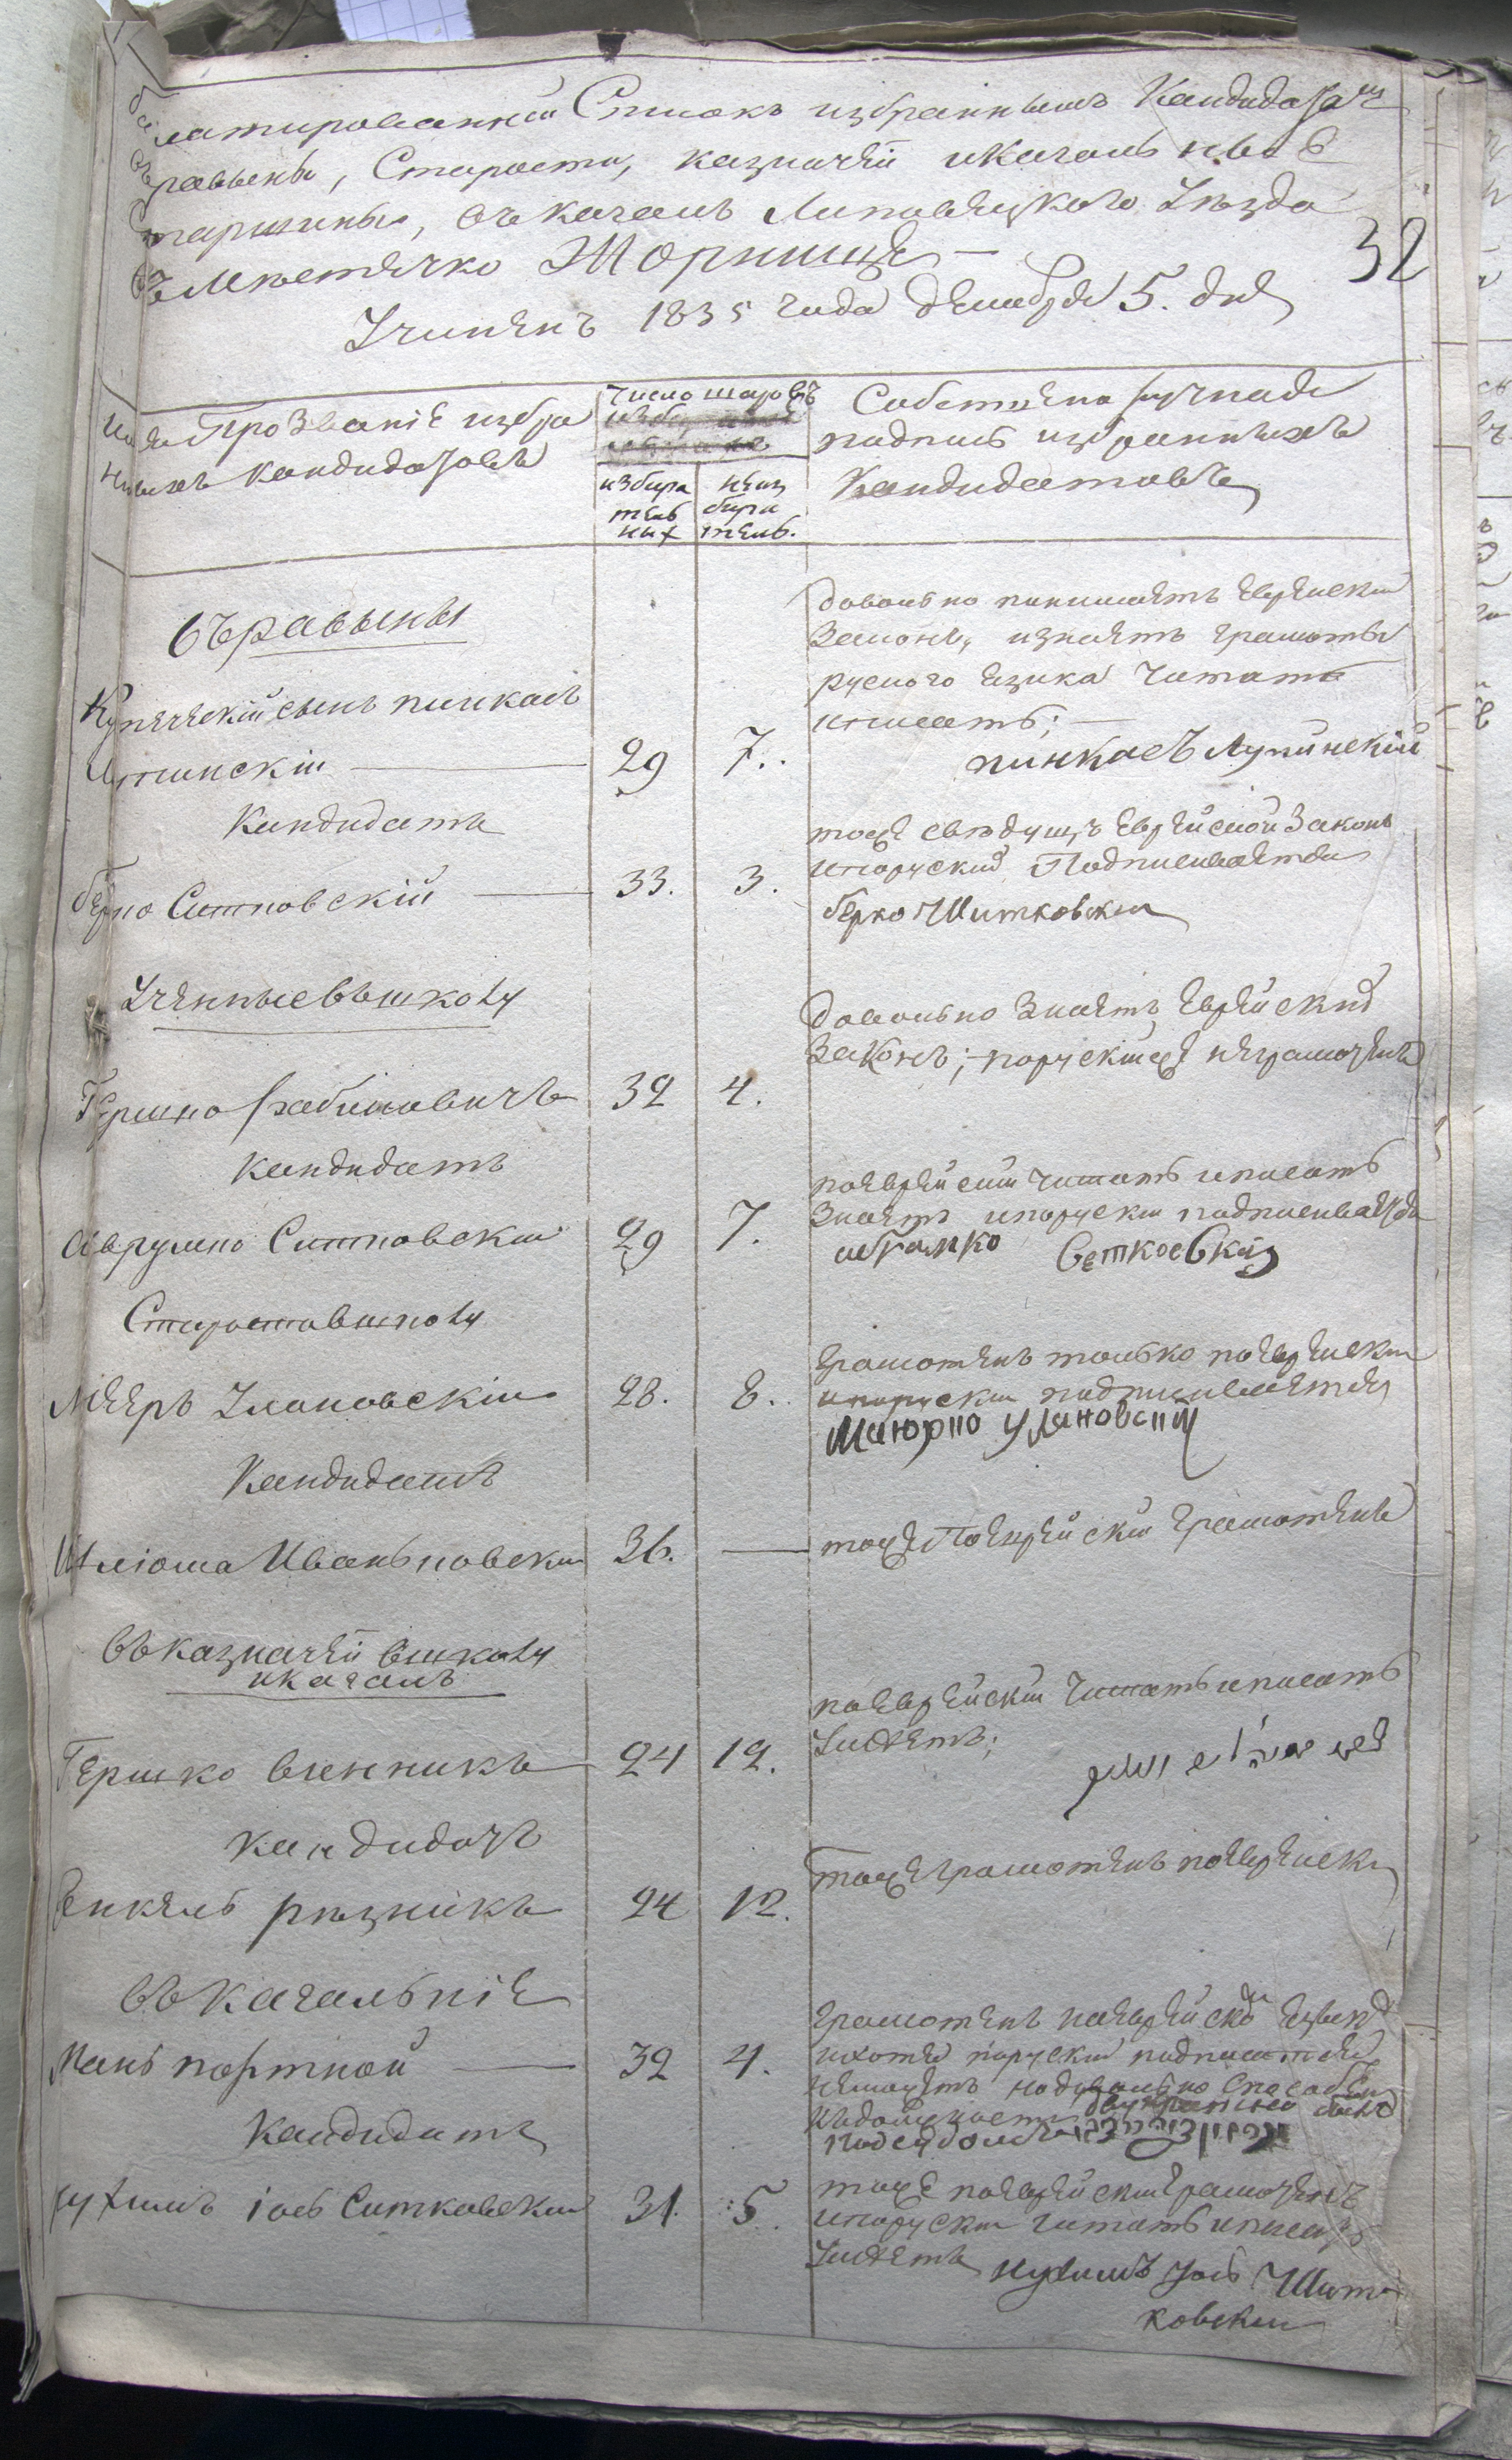 Балатированній Списокъ избраннымъ Кандидатамъ
въ равыны, Старосты, казначѣи и кагальныѣ С
таршины, въ кагалъ Липовецкого Уѣзда
въ Мѣстечко Жорнище —
32
Учиненъ 1835 года декабря 5. дня
Имя Прозваніе избра
ныхъ кандидатовъ
Число шаровъ
избира
тель
ныхъ
неиз
бира
тель.
Собственоручная
подпись избранныхъ
Кандидатовъ
въ равыны
Купеческій сынъ пинкасъ
Лупинскій — 29 7.
довольно понимаетъ Еврейскій
Законъ, изнаетъ грамоты
руского языка Читать
и писать; —
пинкасъ Лупинскій
Кандидатъ
берко Ситковскій — 33. 3.
тоже свѣдущъ Еврейской Законъ
и поруский Подписывается
берко Шитковскии
Ученые въ школу
Гершко рабиновичъ 32 4.
довольно Знаетъ Еврейский
Законъ; поруски же неграмотенъ
кандидатъ
Аврумко Ситковский 29 7.
поеврейски читать и писать
Знаетъ и поруски подписывается
абрамко Сеткоевкий
Староста в школу
Мееръ Улановскій 28. 8.
грамотенъ только поеврейски
и поруски подписивается
Маюрко Улановский
Кандидатъ
Шлиома Иваньковски 36. —
тоже Поеврейски грамотенъ
въ казначѣи в школу
и кагалъ
Гершко винникъ 24 12.
поеврейски Читать и писать
Умѣетъ;
кандидатъ
Енкель рѣзникъ 24 12.
тоже грамотенъ поеврейски
въ Кагальніе
Мань портной — 32 4.
грамотенъ на еврейском языкѣ
и хотя поруский подписатся
не можетъ но довольно Способен
къ должности
Кандидатъ
нухимъ іось Ситковский 31. 5.
тоже поеврейски грамотенъ
и поруски читать и писать
Умѣетъ нухимъ Іось Шит
ковски